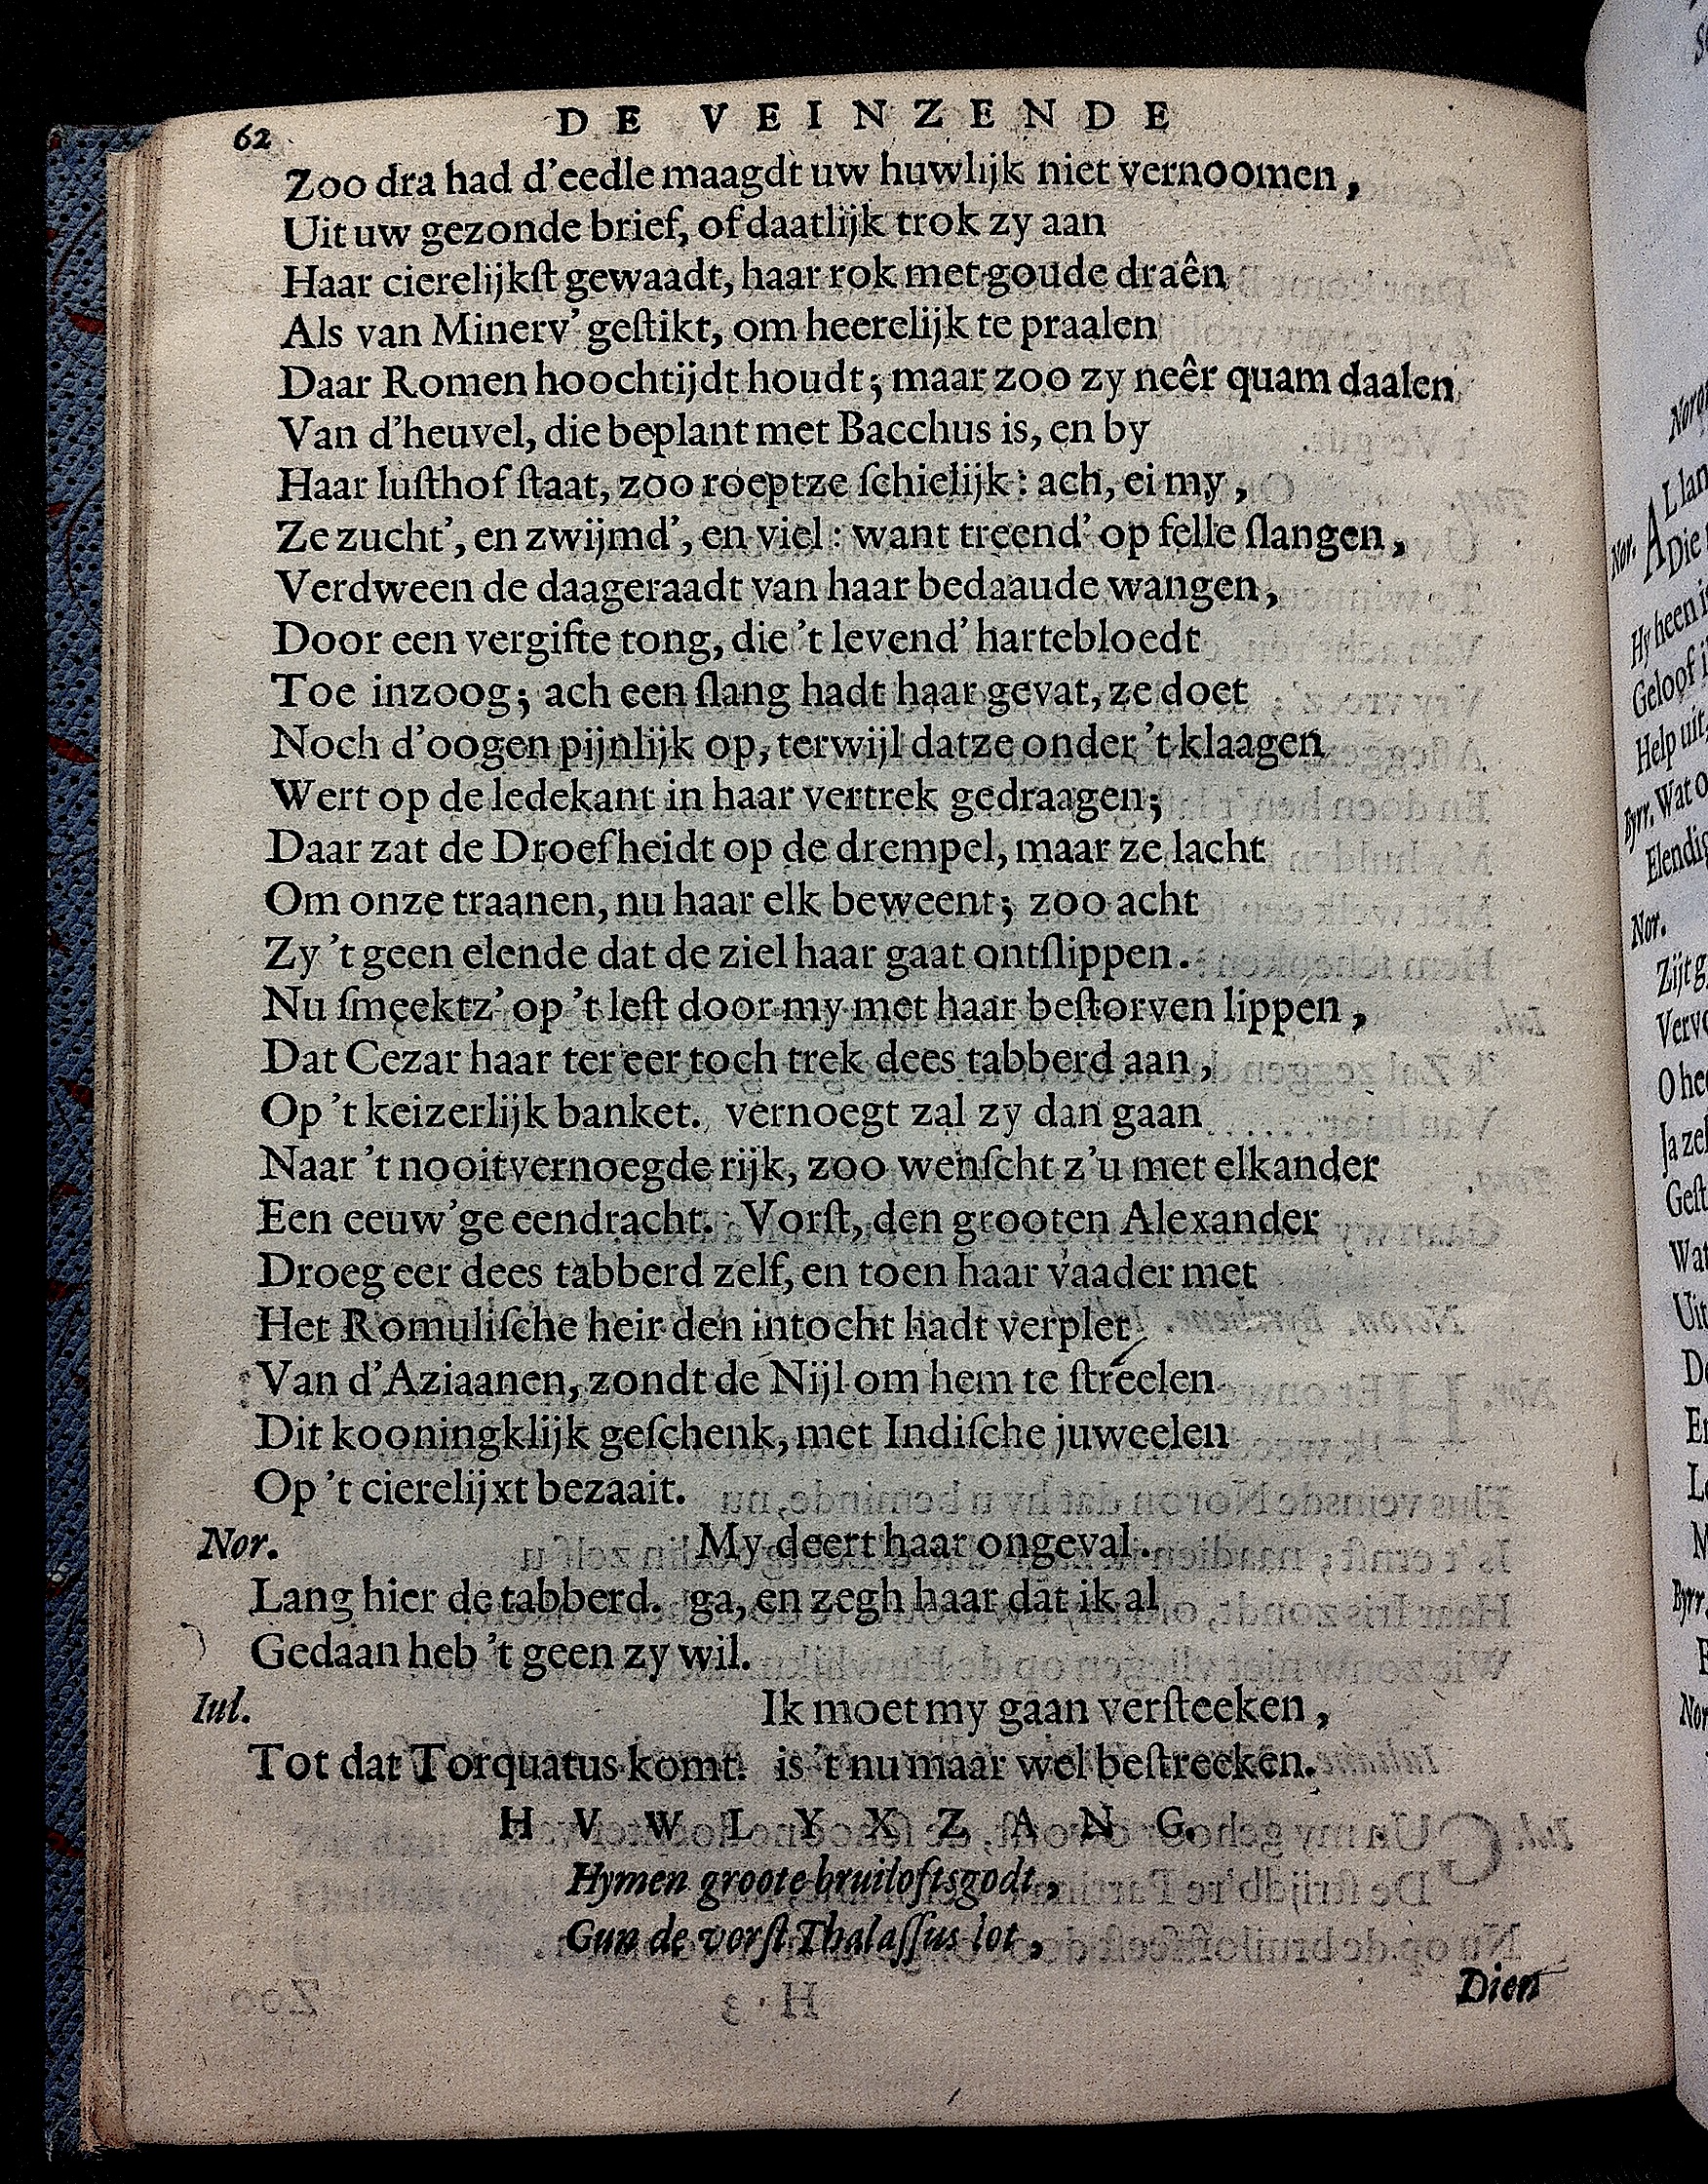 62 DE VEINZENDE
Zoo dra had d'eedle maagdt uw huwlijk niet vernoomen,
Uit uw gezonde brief, of daatlijk trok zy aan
Haar cierelijkſt gewaadt, haar rok met goude draên
Als van Minerv' geſtikt, om heerelijk te praalen
Daar Romen hoochtijdt houdt; maar zoo zy neêr quam daalen
Van d'heuvel, die beplant met Bacchus is, en by
Haar luſthof ſtaat, zoo roeptze ſchielijk: ach, ei my,
Ze zucht', en zwijmd', en viel: want treend' op felle ſlangen,
Verdween de daageraadt van haar bedaaude wangen,
Door een vergifte tong, die 't levend' hartebloedt
Toe inzoog; ach een ſlang hadt haar gevat, ze doet
Noch d'oogen pijnlijk op, terwijl datze onder 't klaagen
Wert op de ledekant in haar vertrek gedraagen;
Daar zat de Droefheidt op de drempel, maar ze lacht
Om onze traanen, nu haar elk beweent; zoo acht
Zy 't geen elende dat de ziel haar gaat ontſlippen.
Nu ſmeektz' op 't leſt door my met haar beſtorven lippen,
Dat Cezar haar ter eer toch trek dees tabberd aan,
Op 't keizerlijk banket. vernoegt zal zy dan gaan
Naar 't nooitvernoegde rijk, zoo wenſcht z'u met elkander
Een eeuw'ge eendracht. Vorſt, den grooten Alexander
Droeg eer dees tabberd zelf, en toen haar vaader met
Het Romuliſche heir den intocht hadt verplet
Van d'Aziaanen, zondt de Nijl om hem te ſtreelen
Dit kooningklijk geſchenk, met Indiſche juweelen
Op 't cierelijxt bezaait.
Nor. My deert haar ongeval.
Lang hier de tabberd. ga, en zegh haar dat ik al
Gedaan heb 't geen zy wil.
Iul. Ik moet my gaan verſteeken,
Tot dat Torquatus komt. is 't nu maar wel beſtreeken.
HVWLYXZANG.
Hymen groote bruiloftsgodt,
Gun de vorſt Thalaſſus lot,
Dien
Nor. AL lan
Die
Hy heen i
Geloof i
Help uit
Byrr. Wat o
Elendig
Nor.
Zijt g
Verv
O hee
Ja ze
Geſt
Wat
Uit